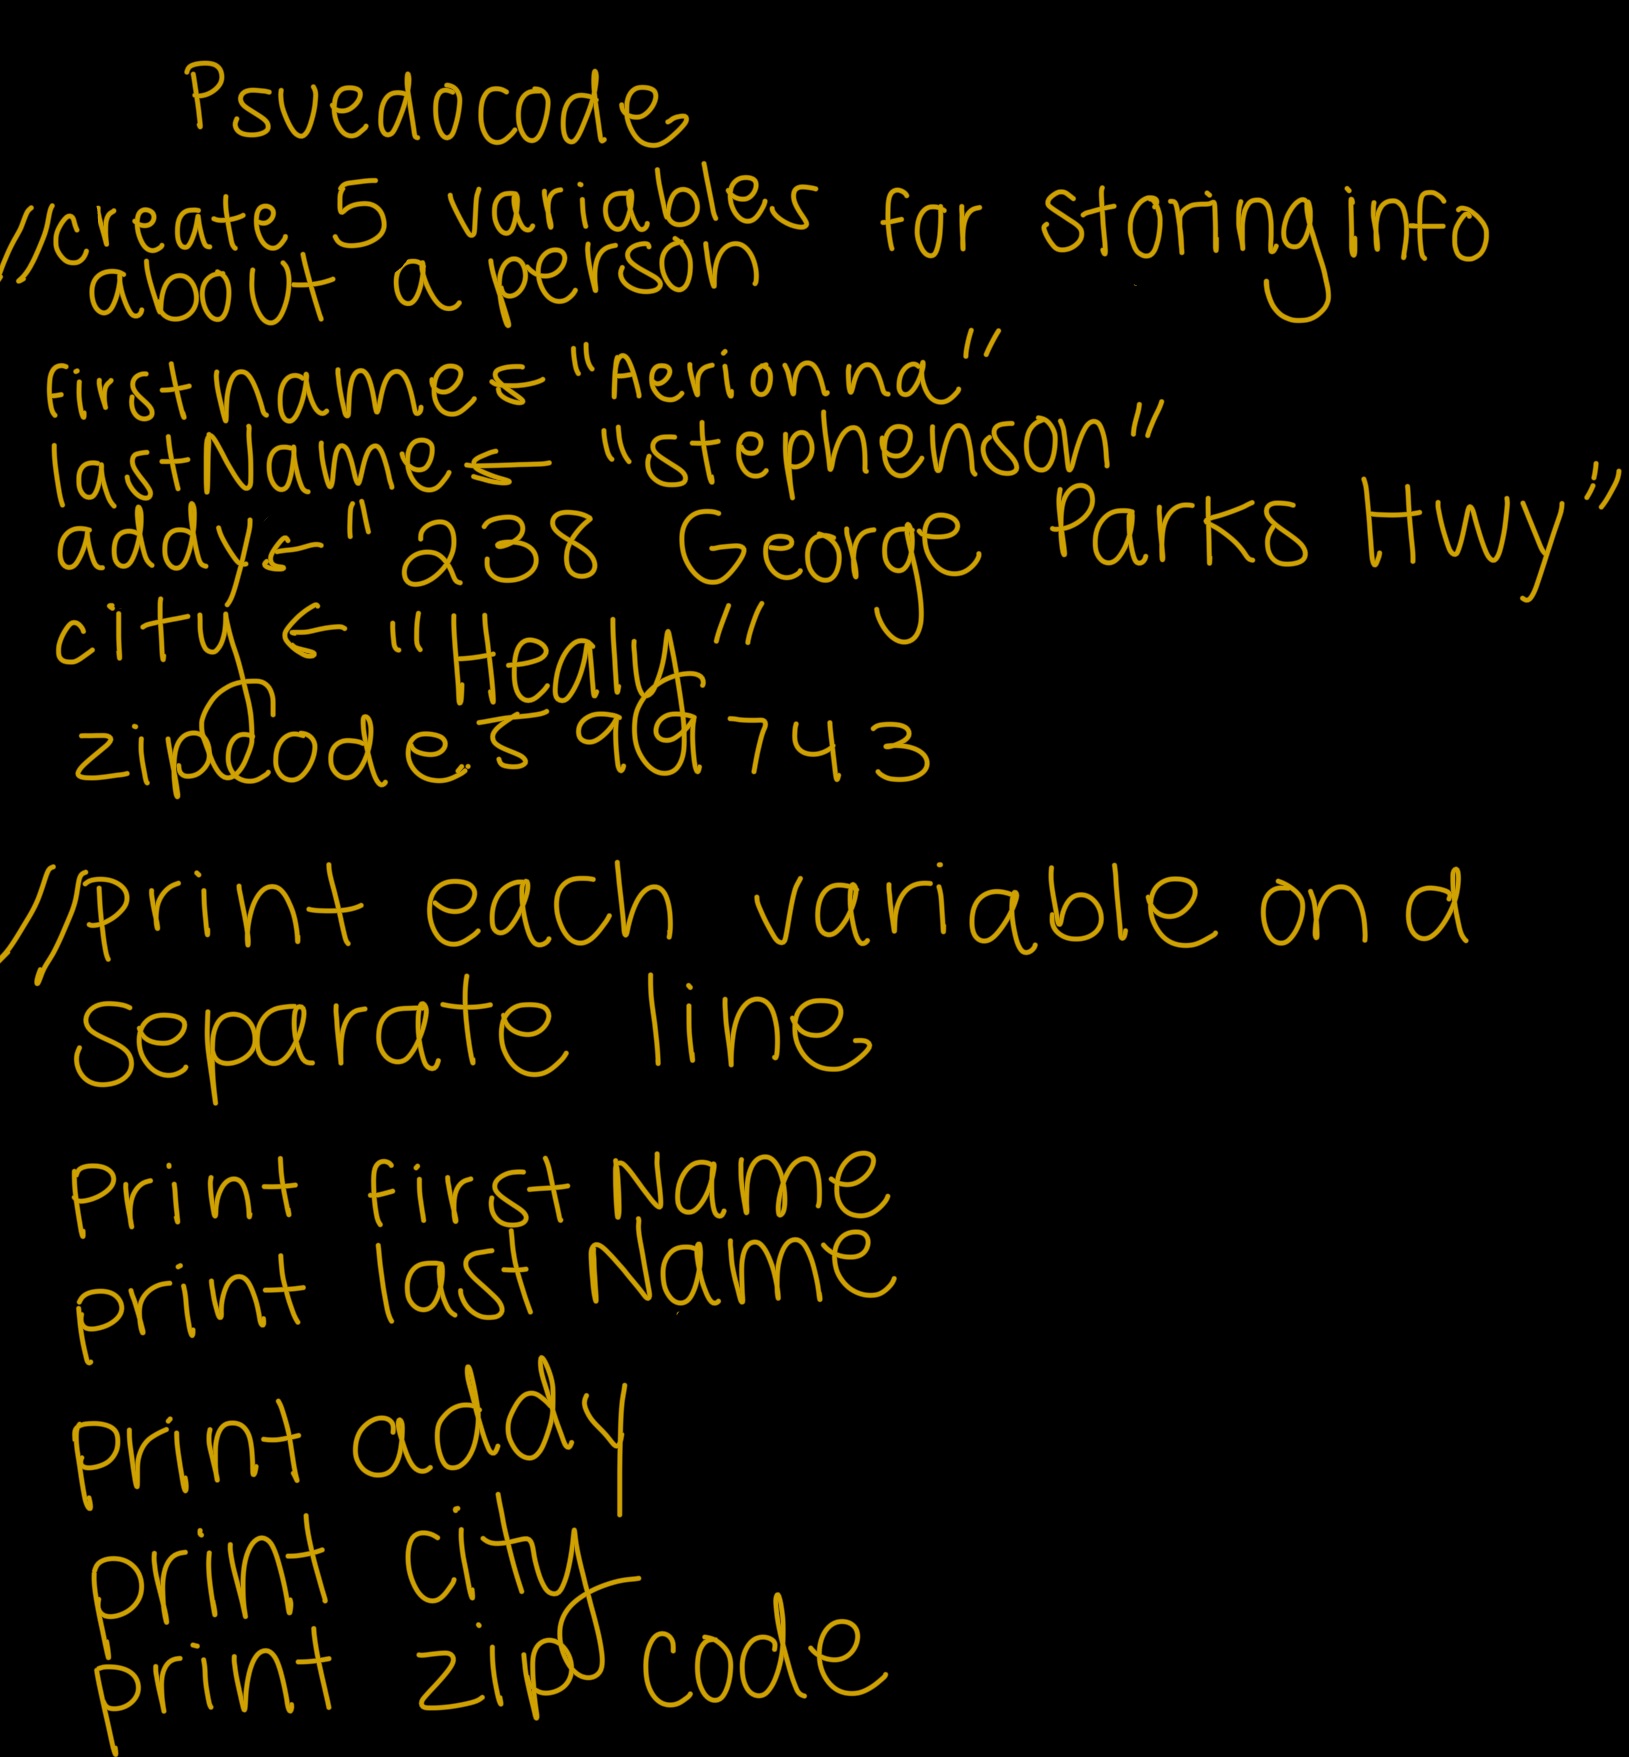 Psuedocode
//create 5 variables for storing info
about a person
firstname ← "Aerionna"
lastName ← "Stephenson"
addy ← "238 George Parks Hwy"
city ← "Healy"
zipcode ← 99743
//print each variable on a
separate line
Print first Name
print last Name
print addy
print city
print zip code